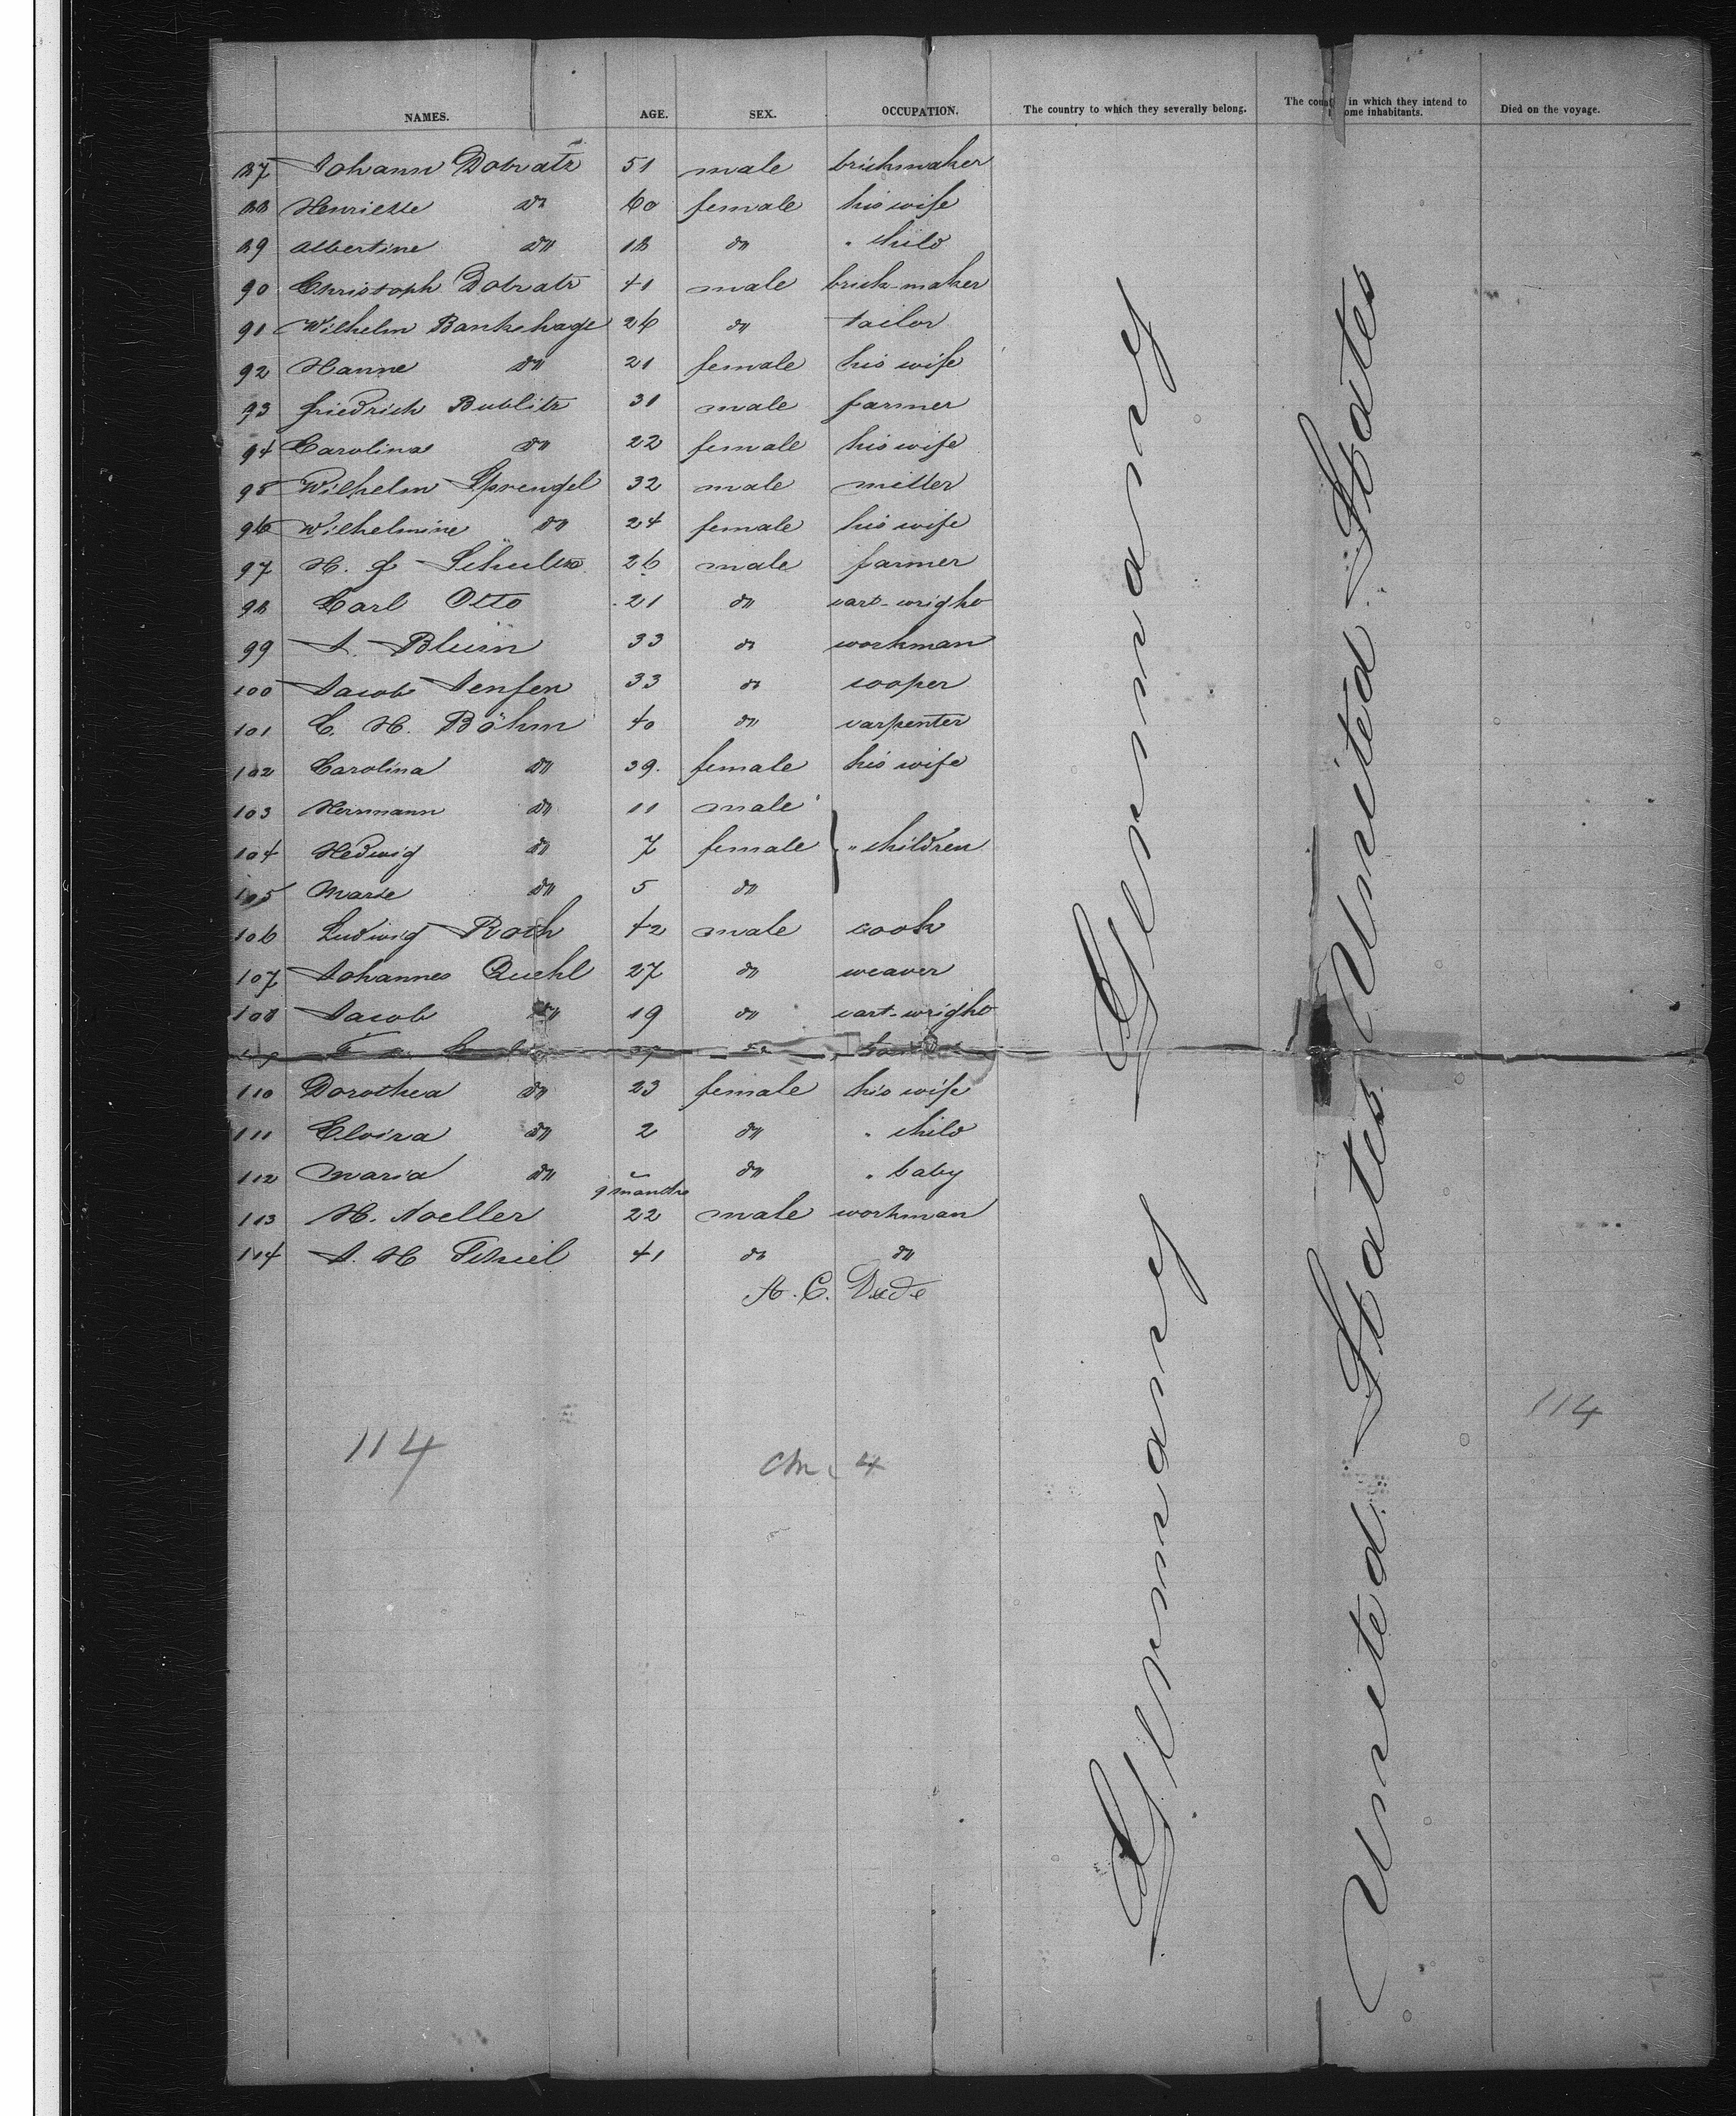 NAMES. AGE. SEX. OCCUPATION. The country to which they severally belong. The country in which they intend to become inhabitants. Died on the voyage.
87 Johann Dobratz 51 male brickmaker
88 Henriette do 60 female his wife
89 Albertine do 18 do " child
90 Christoph Dobratz 41 male brick-maker
91 Wilhelm Bankshage 26 do tailor
92 Hanne do 21 female his wife
93 Friedrich Bublitz 31 male farmer
94 Carolina do 22 female his wife
95 Wilhelm Sprengel 32 male miller
96 Wilhelmine do 24 female his wife
97 H. J Schultze 26 male farmer
98 Carl Otto 21 do cart-wright
99 J. Blum 33 do workman
100 Jacob Jensen 33 do cooper
101 C. H. Böhm 40 do carpenter
102 Carolina do 39. female his wife
103 Hermann do 11 male
104 Hedwig do 7 female " children
105 Marie do 5 do
106 Ludwig Roth 42 male cook
107 Johannes Quehl 27 do weaver
108 Jacob do 19 do cart-wright
110 Dorothea do 23 female his wife
111 Elvira do 2 do " child
112 Maria do 9 months do " baby
113 H. Noeller 22 male workman
114 J. H Thiel 41 do do
A. C. Dede
Germany United States
Germany United States
114
114